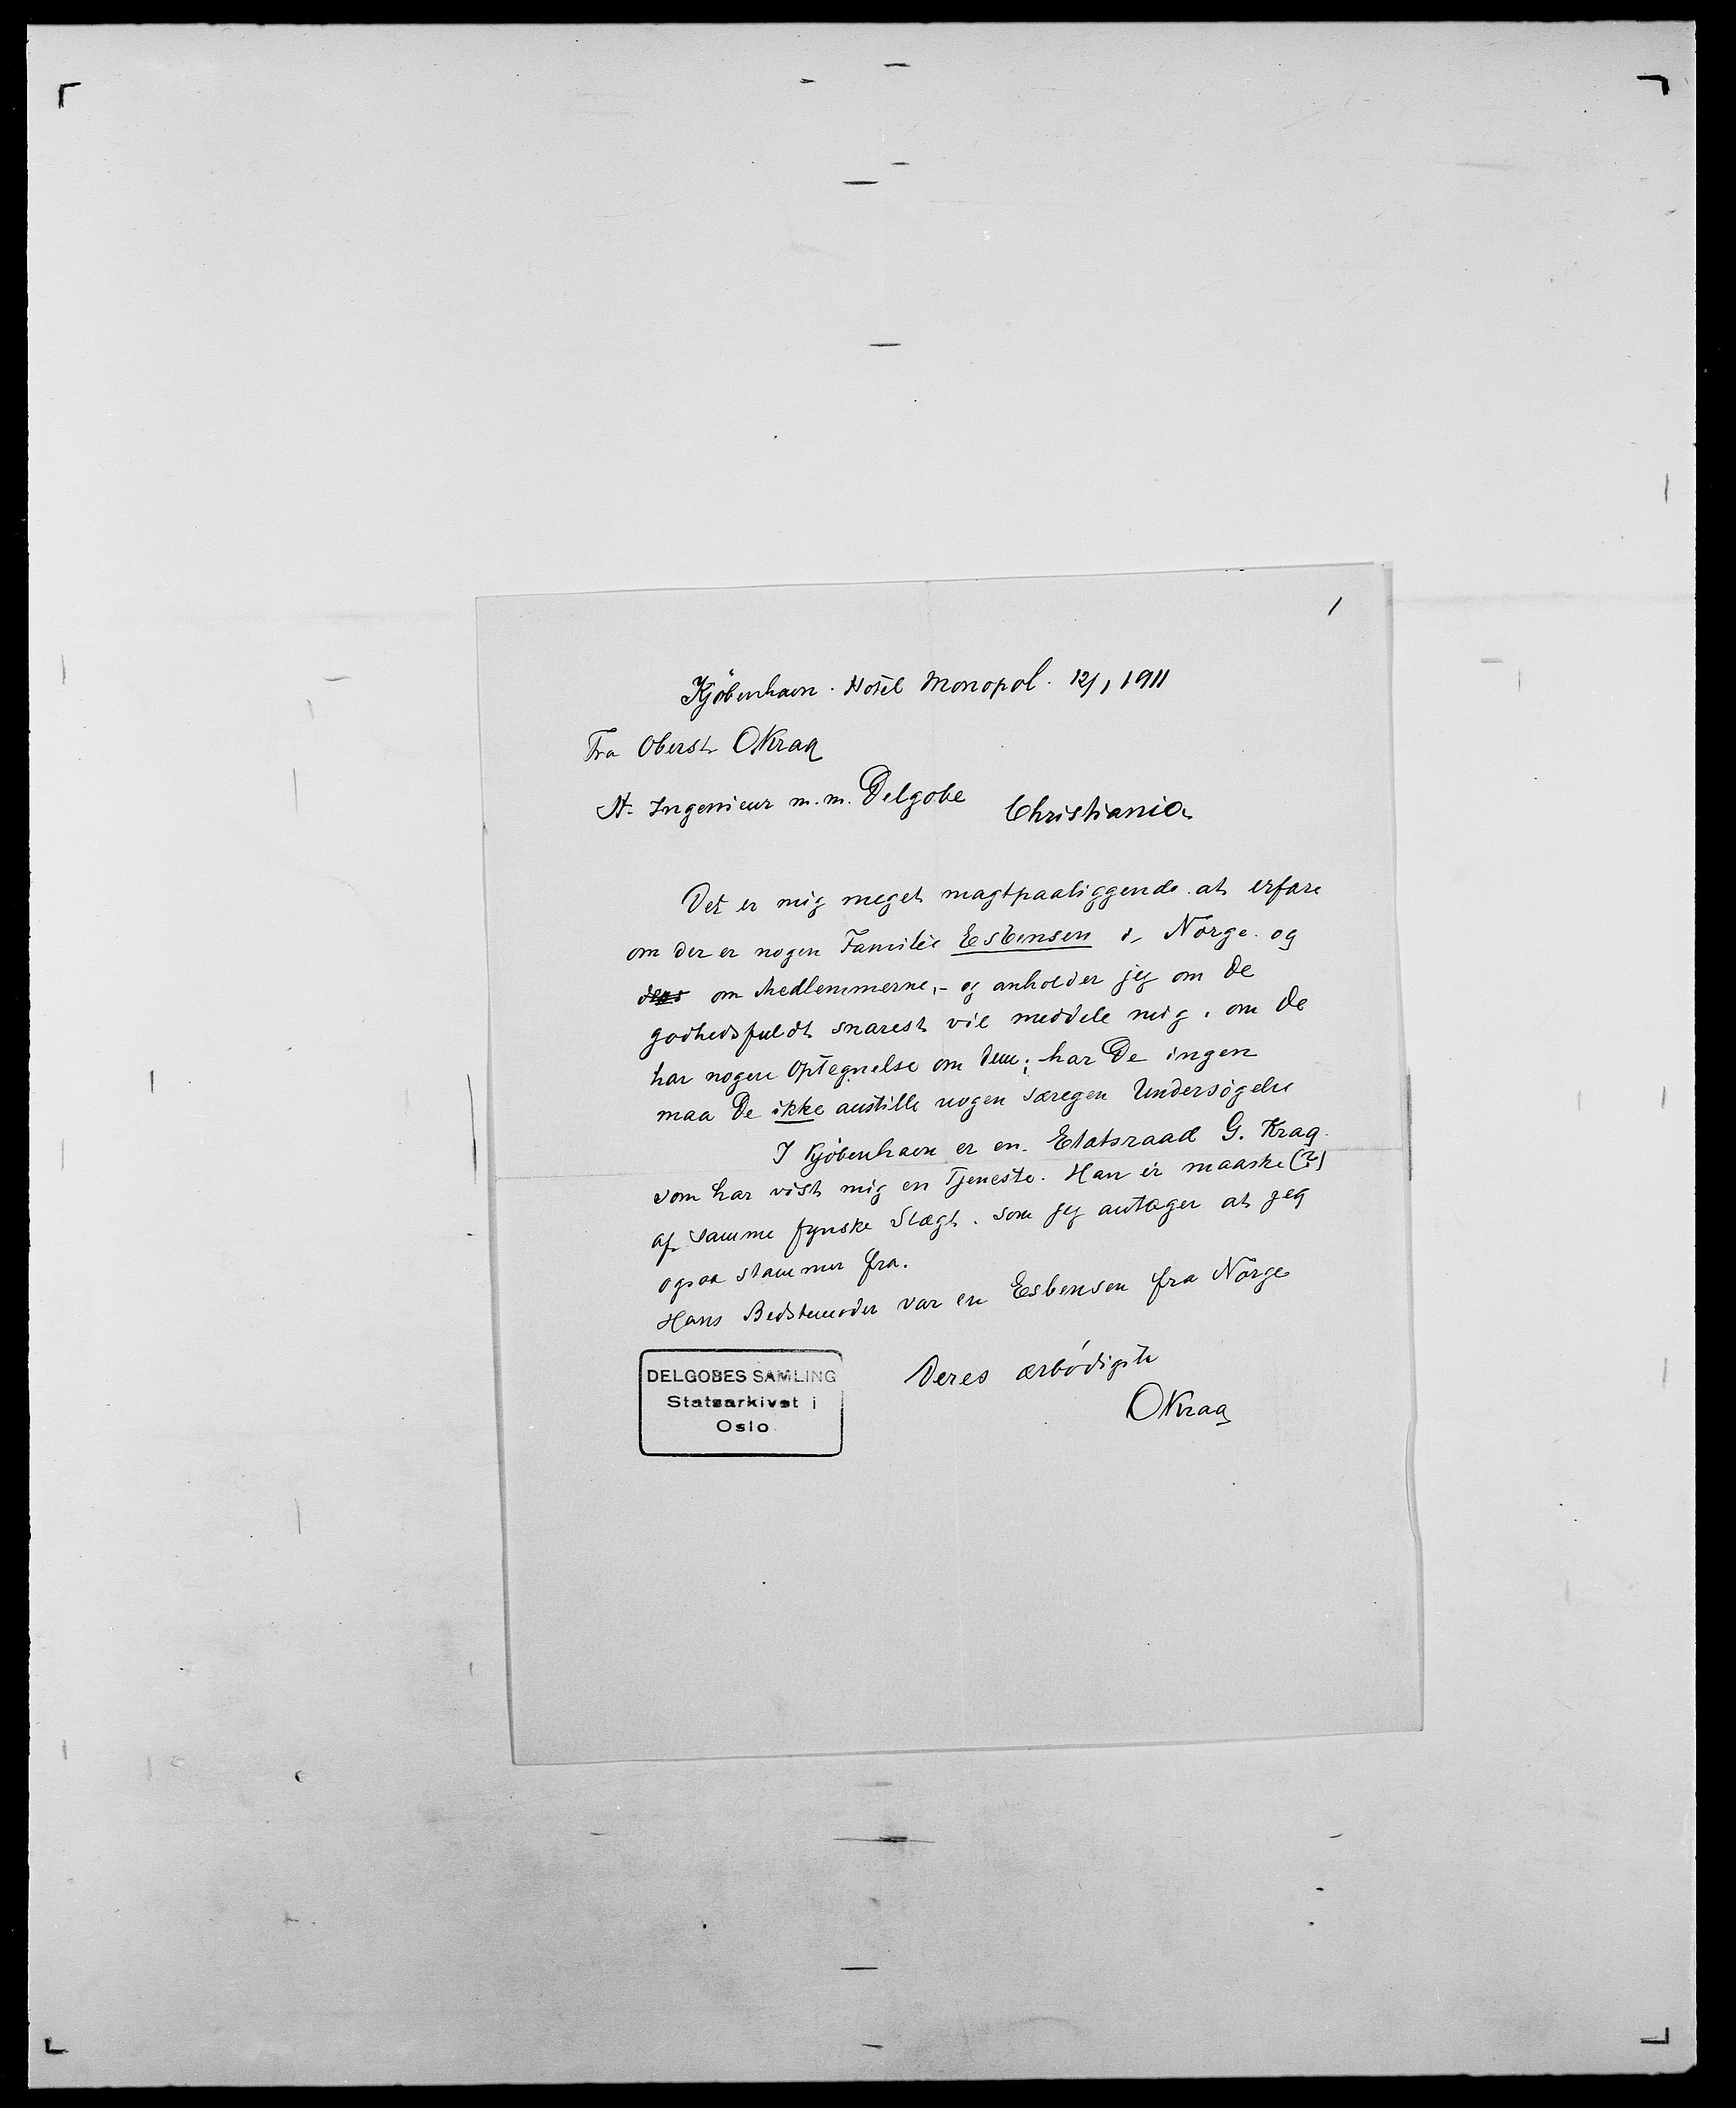 1
Kjöbenhavn. Hotel Monopol. 12/1 1911
Fra Oberst OKrag
Hr. Ingenieur m.m. Delgobe Christiania
Det er mig meget magtpaaliggende at erfare
om der er nogen Familie Esbensen i Norge og
om Medlemmerne, - og anholder jeg om De
godhedsfuldt snarest vil meddele mig, om De
har nogen Optegnelse om dem; har De ingen
maa De ikke anstille nogen særegen Undersögelse
I Kjöbenhavn er en Etatsraad G. Krag
som har vist mig en Tjeneste. Han er maaske (?)
af samme fynske Slægt. som jeg antager at jeg
ogsaa stammer fra.
Hans Bedstemoder var en Esbensen fra Norge
Deres ærbödigste
OKrag
DELGOBES SAMLING
Statsarkivet i
Oslo